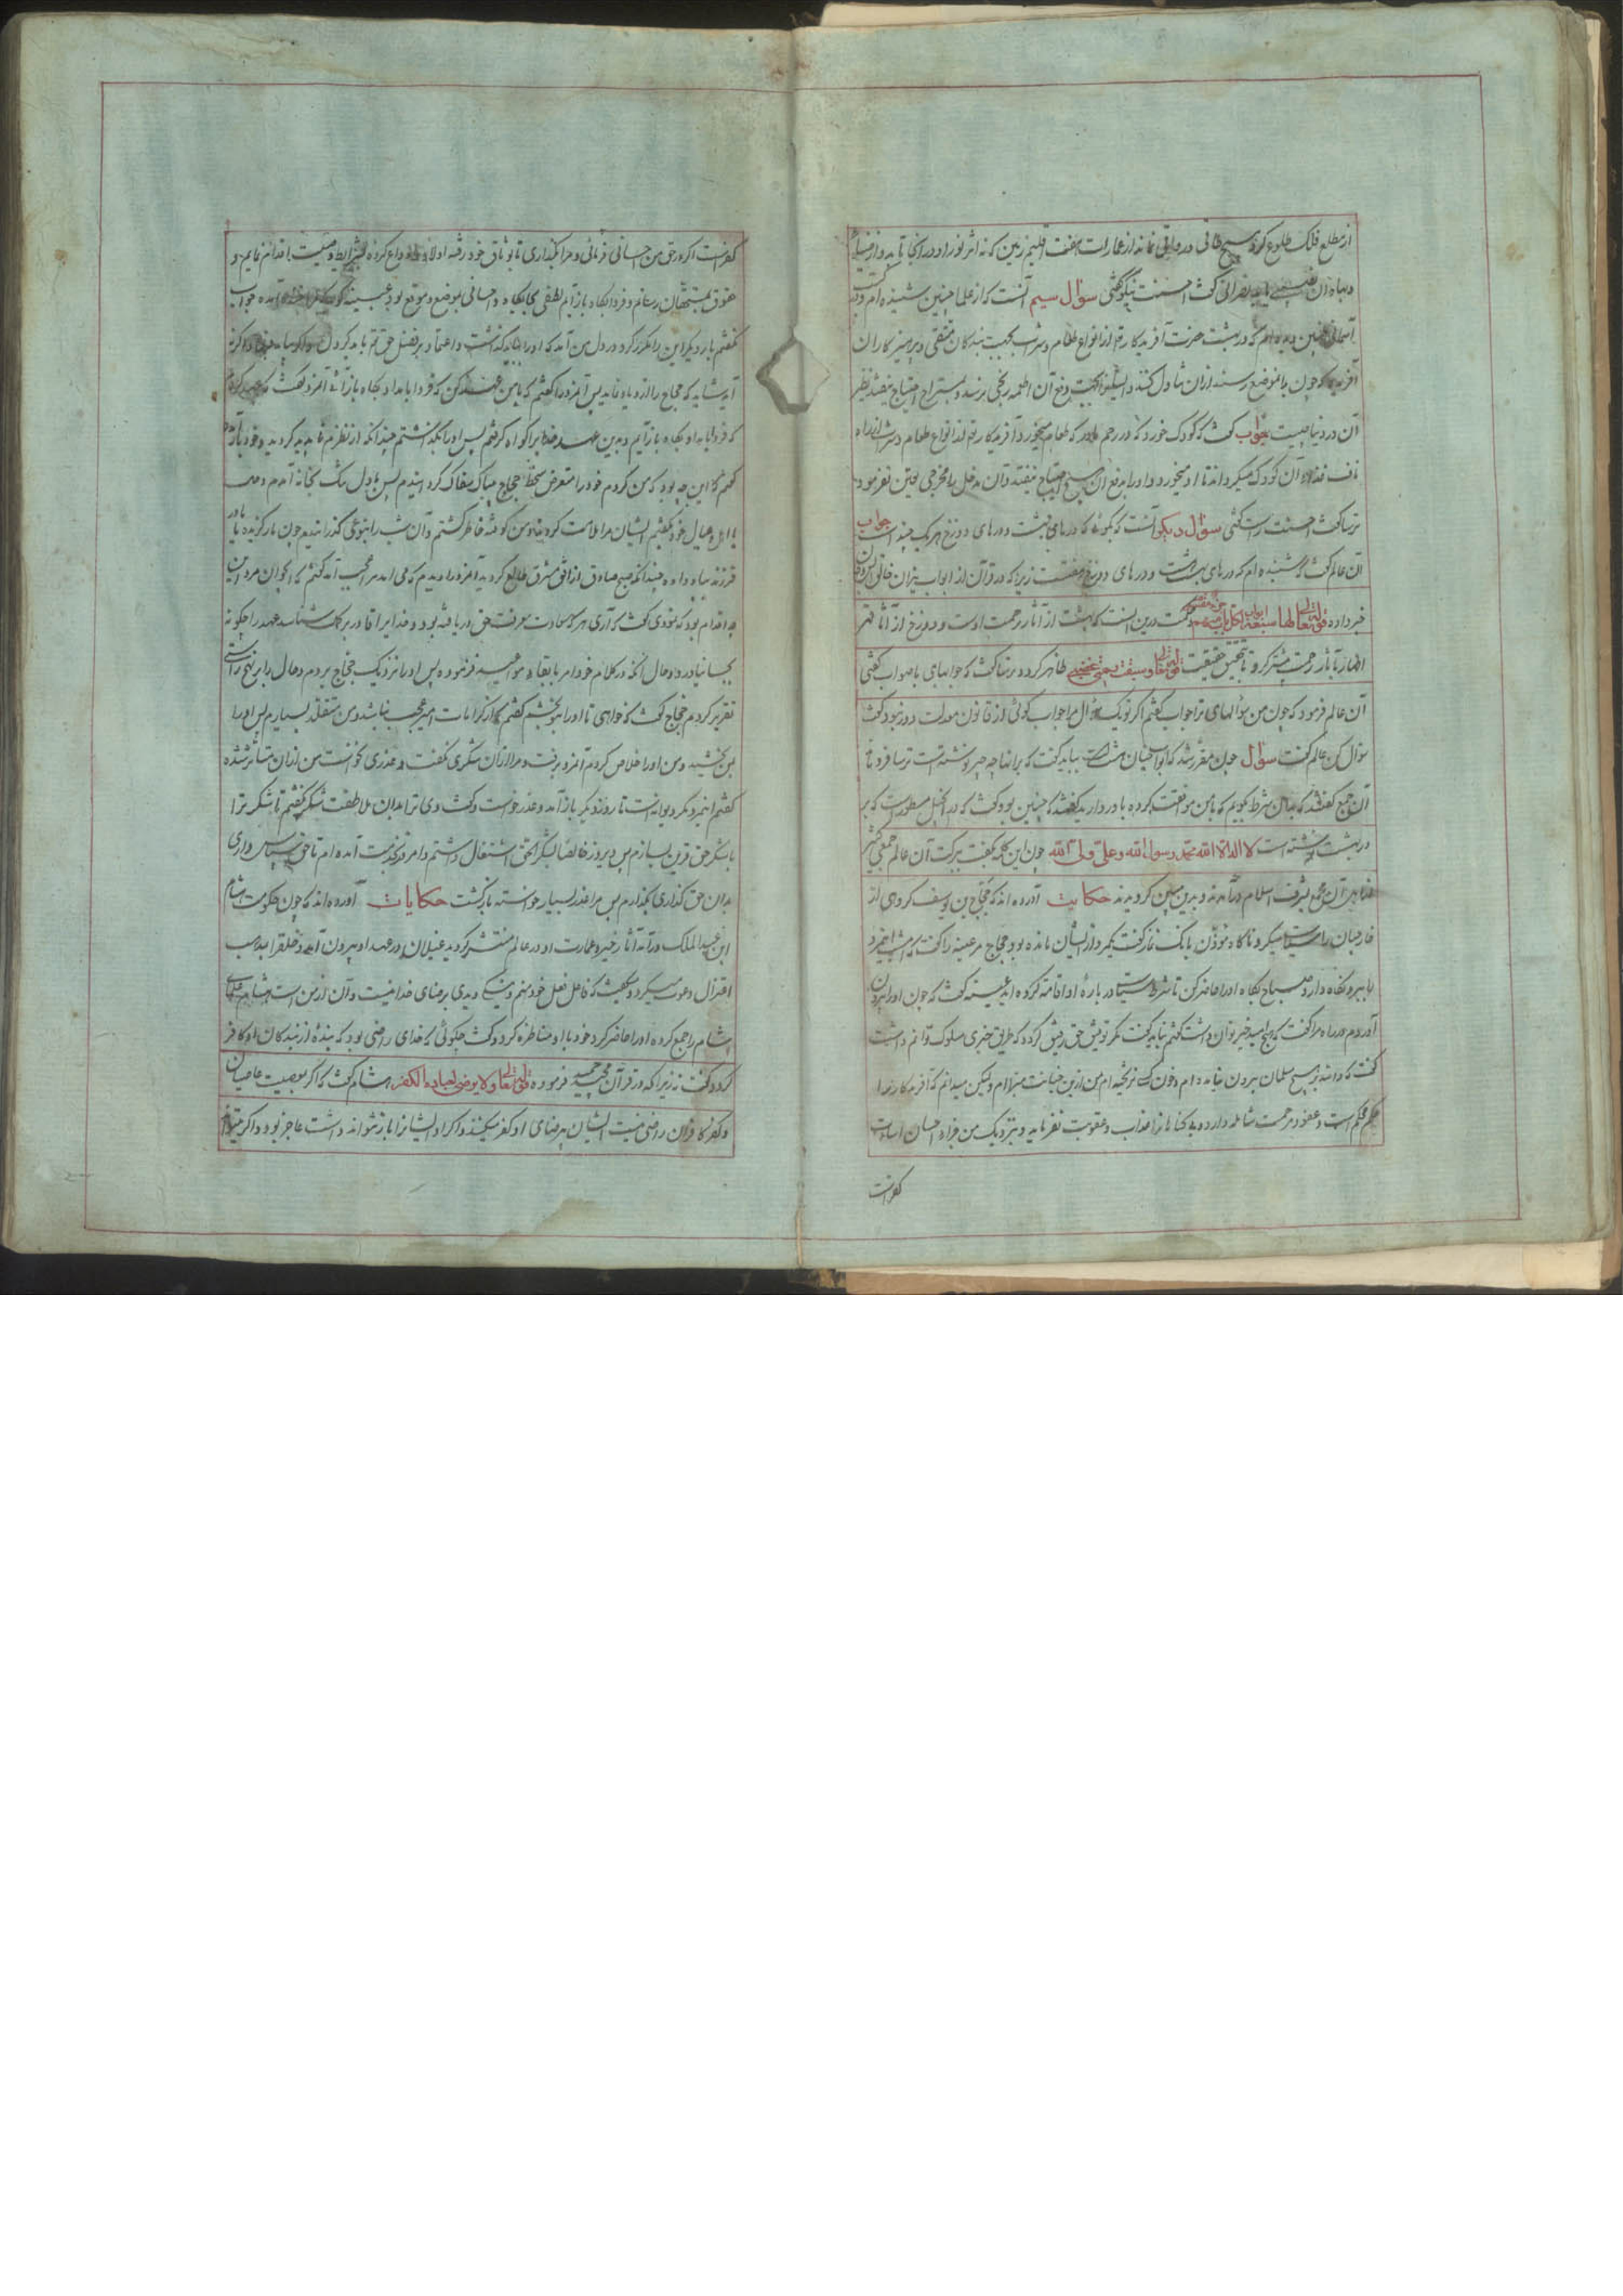 از مطلع فلک طلوع کرد هیچ طاقی و رواقی نماند از عمارات هفت اقلیم زمین که نه اثر نور او در آنجا تابد و از ضیا
نصرانی گفت احسنت نیکو گفتی سؤال سیم آنست که از علما چنین شنیده ام و در کتب
آسمانی چنین دیده ام که در بهشت حضرت آفریدکار از انواع طعام و شراب بجهت بندکان متقی و پرهیزکاران
آفریده که چون بدان موضع رسند ازان تناول کنند و ایشانرا بجهت دفع آن اطعمه رنجی نرسد و بمستراح احتیاج نیفتد نظیر
آن در دنیا چیست جواب گفت که کودک خورد که در رحم مادر که طعام میخورد آفریدکار از انواع طعام و شراب از راه
ناف غذاء آن کودک میکرداند تا او میخورد و او را بدفع آن هیچ احتیاج نیفتد و آن مدخل را مخرجی تعین نفرمود
ترسا گفت احسنت راست گفتی سؤال دیکر آنست که بگوئی که درهای بهشت و درهای دوزخ هر یک چند است جواب
آن عالم گفت که شنیده ام که درهای بهشت هشت و درهای دوزخ هفتست زیرا که در قرآن از ابواب نیران خالق
خبر داده قوله تعالی لها سبعة ابواب لکل باب منهم جزء مقسوم و حکمت درین اینست که بهشت از آثار رحمت اوست و دوزخ از آثار قهر
اظهار آثار رحمت بیشتر کرد تا بتحقیق حقیقت قوله تعالی و سبقت رحمتی غضبی ظاهر کردد ترسا گفت که جوابهای با صواب گفتی
آن عالم فرمود که چون من سؤالهای ترا جواب گفتم اکر تو یک سؤال مرا جواب گوئی از قانون معدلت دور نبود گفت
سؤال کن عالم گفت سؤال چون مقرر شد که ابواب جنان هشت است بباید گفت که بر آنها چه چیز نوشته است ترسا فرو ماند
آن جمع گفتند که بدان شرط بگویم که با من موافقت کرده باور دارید گفتند که چنین بود گفت که در انجیل مسطور است که بر
در بهشت نوشته است لا اله الا الله محمد رسول الله و علی ولی الله چون این کلمه بگفت ببرکت آن عالم جمعی کثیر
از آن مجمع بشرف اسلام درآمدند و بدین مبین کرویدند حکایت آورده اند که حجاج بن یوسف کروهی از
خارجیان را سیاست میکرد ناکاه مؤذن بانک نماز گفت یکمرد از ایشان مانده بود حجاج مر عنبسه را گفت که امشب اینمرد
را ببر و نکاه دار و صباح پکاه او را حاضر کن تا شرط سیاست در بارهٔ او اقامت کرده آید عنبسه گفت که چون او را بیرون
آوردم در راه مرا گفت که هیچ امید خیر توان داشت گفتم بباید گفت مکر توفیق حق رفیق کردد که طریق خیری سلوک توانم داشت
گفت که والله بر هیچ مسلمان بیرون نیامده ام و خون کسی نریخته ام من ازین خیانت مبرا ام ولیکن میدانم که آفریدکار خدا
حکیم محکم است و عفو و مرحمت شامله دارد و بیکناهانرا عذاب و عقوبت نفرماید و بنزدیک من جزاء احسان اساءت
کفرانست
کفرانست اکر در حق من احسانی فرمائی و مرا بگذاری تا بوثاق خود رفته اولاد را وداع کرده بشرایط وصیت اقدام نمایم و
حقوق بمستحقان رسانم و فردا پکاه باز آیم لطفی بجایگاه و احسانی بموضع و موقع بود عنبسه گوید که مرا خنده آمده جواب
نگفتم بار دیکر این را مکرر کرد در دل من آمد که او را بباید گذاشت و اعتماد بر فضل حق باید کرد
آید شاید که حجاج را از و یاد نیاید پس آنمرد را گفتم که با من عهد کن که فردا بامداد پکاه باز آئی آنمرد گفت که عهد کردم
که فردا بامداد پکاه باز آیم و بدین عهد خدایرا گواه کرفتم پس او را بگذاشتم چندانکه از نظرم ناپدید کردید و خود باز
گفتم که این چه بود که من کردم خود را متعرض سخط حجاج بیباک سفاک کردانیدم پس با دل تنگ بخانه آمدم و
با اهل و عیال خود گفتم ایشان مرا ملامت کردند و من کوفته خاطر کشتم و آن شب را بنوعی گذرانیدیم چون مار گزیده یا مادر
فرزند بباد داده چندانکه صبح صادق از افق مشرق طالع کردید آنمرد را دیدم که می آمد مرا عجب آمد گفتم که ای جوان مرد این
چه اقدام بود که نمودی گفت که آری هر که سعادت معرفت حق دریافته بود و خدایرا قادر بر کمال شناسد عهد را چکونه
بجا نیاورد و حال آنکه در کلام خود امر بایفاء مواعید فرموده پس او را نزدیک حجاج بردم و حال را بر نهج راستی
تقریر کردم حجاج گفت که خواهی تا او را بتو بخشم گفتم که از کرامات امیر عجب نباشد و من متقلد بسیارم پس او را
بمن بخشید و من او را خلاص کردم آنمرد برفت و مرا از آن شکری نگفت و عذری نخواست من ازان متاثر شده
گفتم اینمرد مکر دیوانه است تا روز دیکر باز آمد و عذر خواست و گفت دی ترا بدان ملاطفت شکر نگفتم تا شکر ترا
با شکر حق قرین نسازم پس دیروز خالصا بشکر حق اشتغال داشتم و امروز بخدمت آمده ام تا حق سپاس داری
بدان حق گذاری بگذارم پس مرا عذر بسیار خواسته بازگشت حکایات آورده اند که چون حکومت شام
ابن عبد الملک در آمد آثار خیر و عمارت او در عالم منتشر کردید غیلان در عهد او بیرون آمد و خلق را بمذهب
اعتزال دعوت میکرد و میگفت که فاعل فعل خود منم و نیکی و بدی برضای خدا نیست و آن از من است هشام علمای
شام را جمع کرده او را حاضر کرد خود با او مناظره کرد و گفت چگوئی که خدای راضی بود که بندهٔ از بندکان او کافر
کردد گفت نه زیرا که در قرآن مجید فرموده قوله تعالی و لا یرضی لعباده الکفر هشام گفت که اکر بمعصیت عاصیان
و کفر کافران راضی نیست ایشان بی رضای او کفر میکنند و اکر او ایشانرا باز نتواند داشت عاجز بود و اکر میتواند